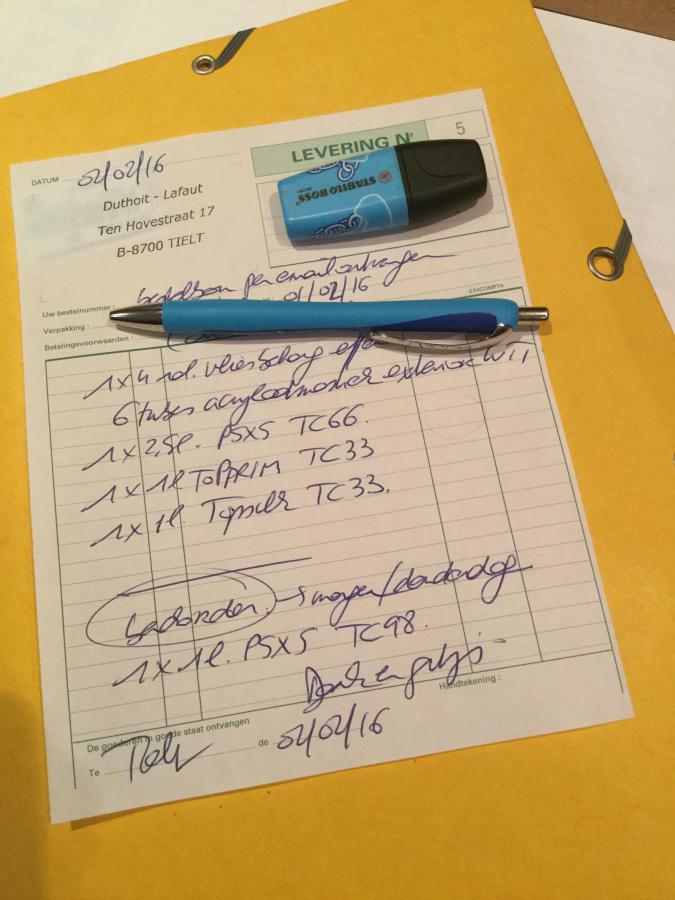 LEVERING N'
5
DATUM 02/02/16
Duthoit - Lafaut
Ten Hovestraat 17
B-8700 TIELT
STABILO BOSS
MINI
Uw bestelnummer : bestelbon per email ontvangen
01/02/16
Verpakking :
Betalingsvoorwaarden :
EXACOMPTA
1x4 rol. vliesbehang
6 tubes exterior
1x2,5l. PSX5 TC66.
1x1l TOPPRIM TC33
1x1l. TC33.
morgen/donderdag
1x1l. PSX5 TC98.
Handtekening :
De goederen in goede staat ontvangen
Te Tielt de 02/02/16